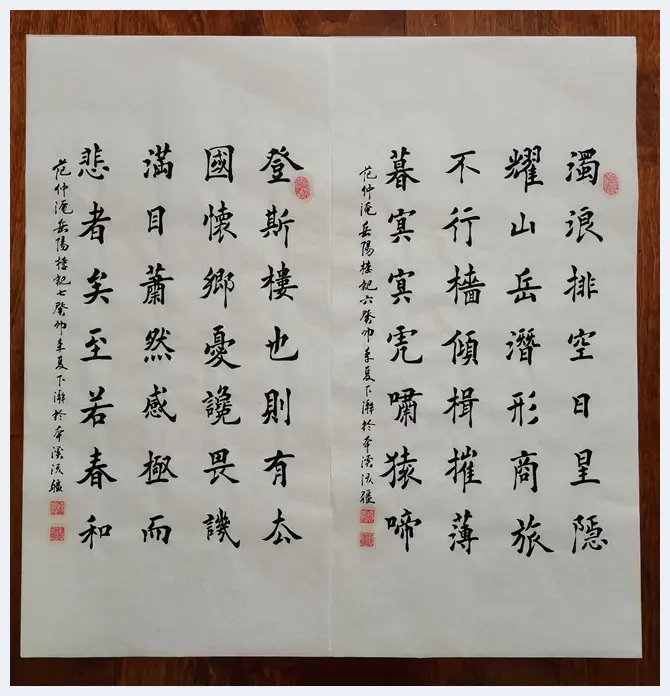 濁浪排空日星隱
耀山岳潛形商旅
不行檣傾楫摧薄
暮冥冥虎嘯猿啼
范仲淹岳陽樓記六癸卯季夏下澣於本溪
登斯樓也則有去
國懷鄉憂讒畏譏
滿目蕭然感極而
悲者矣至若春和
范仲淹岳陽樓記七癸卯季夏下澣於本溪